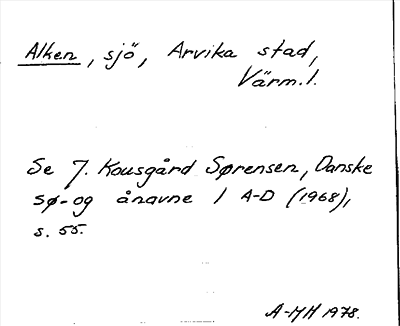 Alken, sjö, Arvika stad,
Värml.
Se J. Kousgård Sørensen, Danske
sø- og ånavne 1 A-D (1968),
s. 55.
A-MH 1978.